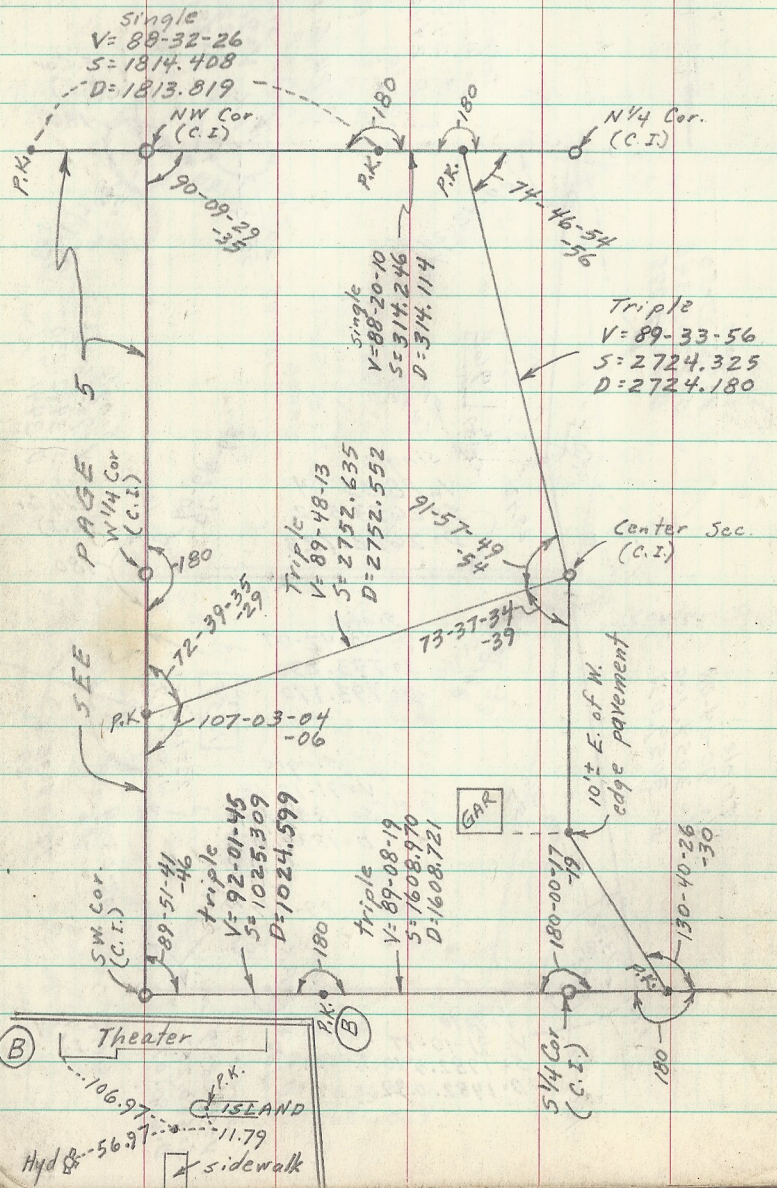 single
V= 88-32-26
S= 1814.408
D= 1813.819
NW Cor.
(C.I)
180
180
N¼ Cor.
(C.I.)
P.K.
P.K.
P.K.
90-09-29
-35
74-46-54
-56
single
V= 88-20-10
S= 314.246
D= 314.114
Triple
V= 89-33-56
S= 2724.325
D= 2724.180
SEE PAGE 5
W¼ Cor
(C.I.)
180
Triple
V= 89-48-13
S= 2752.635
D= 2752.552
91-57-49
-54
Center Sec.
(C.I.)
72-39-35
-29
73-37-34
-39
P.K.
107-03-04
-06
10'± E. of W.
edge pavement
GAR
SW. Cor.
(C.I.)
89-51-41
-46
triple
V= 92-01-45
S= 1025.309
D= 1024.599
180
triple
V= 89-08-19
S= 1608.970
D= 1608.721
180-00-17
-19
130-40-26
-30
P.K.
P.K.
S¼ Cor
(C.I.)
180
B
B
Theater
106.97
P.K.
ISLAND
11.79
Hyd
56.97
sidewalk